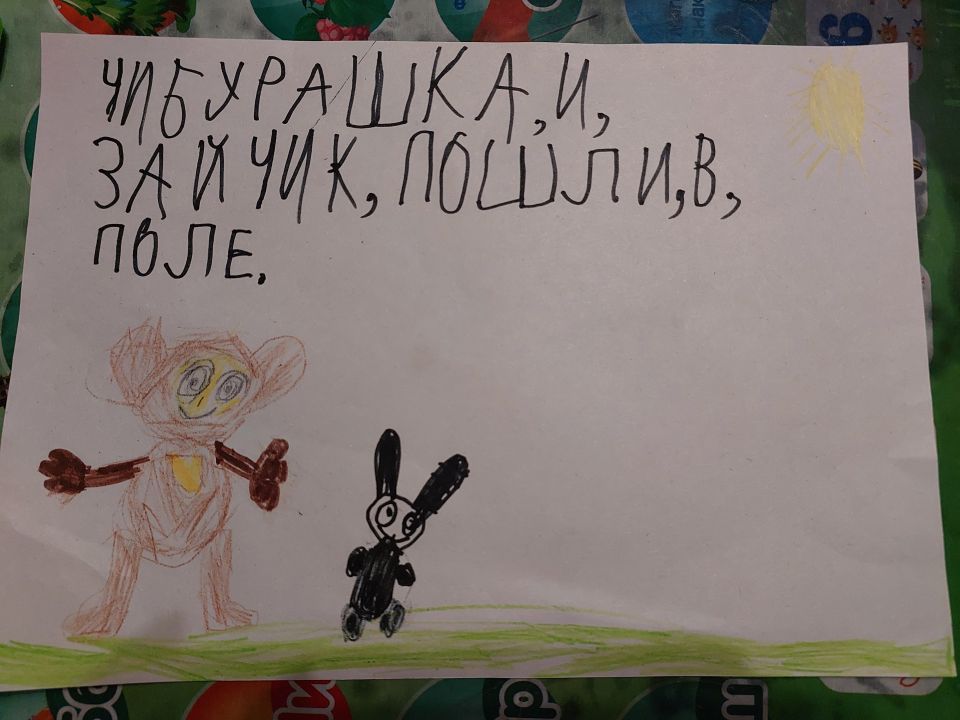 ЧИБУРАШКА,И,
ЗАЙЧИК,ПОШЛИ,В,
ПОЛЕ.